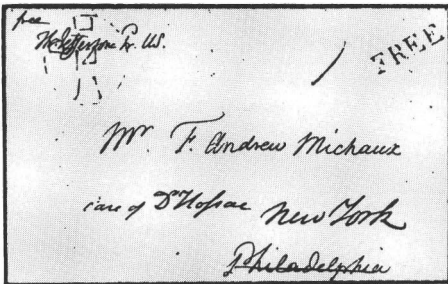 free
Th Jefferson Pr. US.
FREE
Mr F. Andrew Michaux
care of Dr Hosac New York
Philadelphia